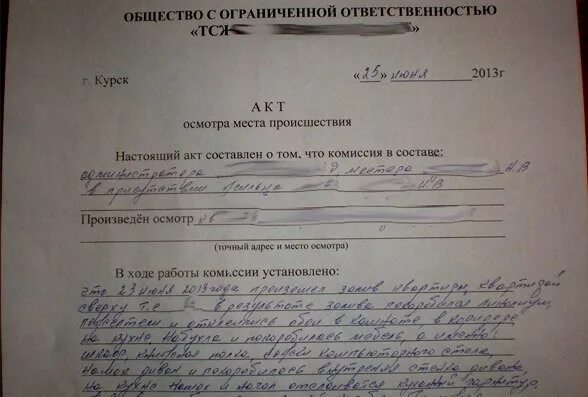 ОБЩЕСТВО С ОГРАНИЧЕННОЙ ОТВЕТСТВЕННОСТЬЮ
«ТСЖ »
г. Курск «25» июня 2013г
АКТ
осмотра места происшествия
Настоящий акт составлен о том, что комиссия в составе:
администратора мастера Н.В
в присутствии жильца И.В
Произведён осмотр
(точный адрес и место осмотра)
В ходе работы комиссии установлено:
Что 23 июня 2013 года произошел залив квартиры квартирой
сверху т.е в результате залива покоробился линолеум,
и отклеились обои в комнате в коридоре
на кухне набухла и покоробилась мебель, а именно:
шкаф, книжная полка, компьютерного стола
намок диван и покоробилась внутренняя стенка дивана,
на кухне намок и начал отслаиваться кухонный гарнитур.